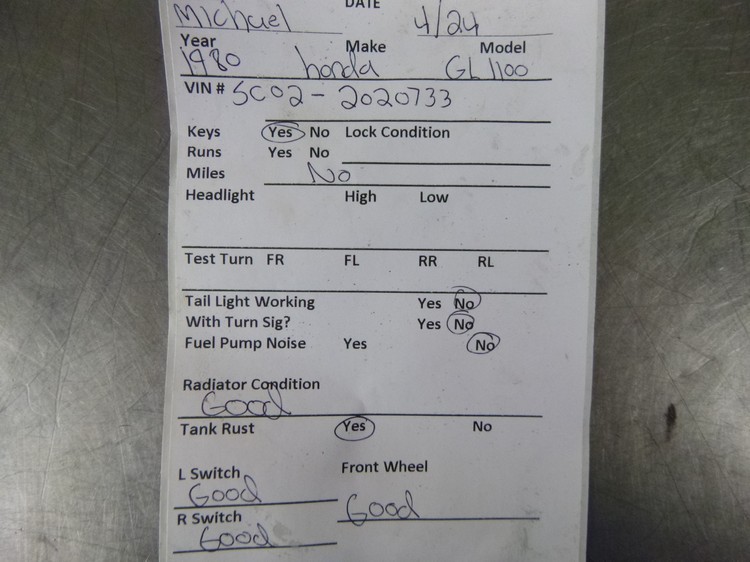 DATE
Michael 4/24
Year Make Model
1980 honda GL1100
VIN # SC02-2020733
Keys Yes No Lock Condition
Runs Yes No
Miles No
Headlight High Low
Test Turn FR FL RR RL
Tail Light Working Yes No
With Turn Sig? Yes No
Fuel Pump Noise Yes No
Radiator Condition
Good
Tank Rust Yes No
L Switch Front Wheel
Good Good
R Switch
Good